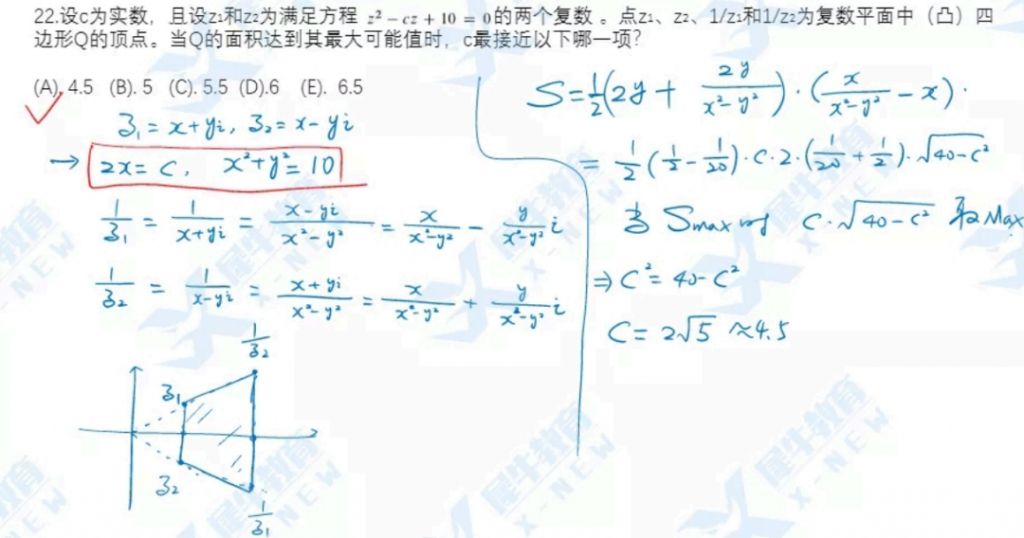 22.设c为实数，且设z1和z2为满足方程 z² − cz + 10 = 0的两个复数 。点z1、z2、1/z1和1/z2为复数平面中（凸）四
边形Q的顶点。当Q的面积达到其最大可能值时，c最接近以下哪一项？
(A). 4.5 (B). 5 (C). 5.5 (D).6 (E). 6.5
z₁ = x+yi, z₂ = x-yi
→ 2x = c, x²+y² = 10
1/z₁ = 1/(x+yi) = (x-yi)/(x²-y²) = x/(x²-y²) - y/(x²-y²) i
1/z₂ = 1/(x-yi) = (x+yi)/(x²-y²) = x/(x²-y²) + y/(x²-y²) i
1/z₂
z₁
z₂
1/z₁
S = 1/2(2y + 2y/(x²-y²))·(x/(x²-y²) - x).
= 1/2(1/2 - 1/20)·c·2·(1/20 + 1/2)·√(40-c²)
当 Smax 时 c·√(40-c²) 取Max
⇒ c² = 40-c²
c = 2√5 ≈4.5
犀牛教育
X-NEW